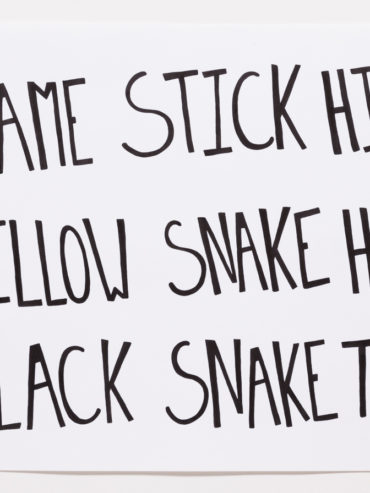 AME STICK HI
ELLOW SNAKE H
LACK SNAKE T